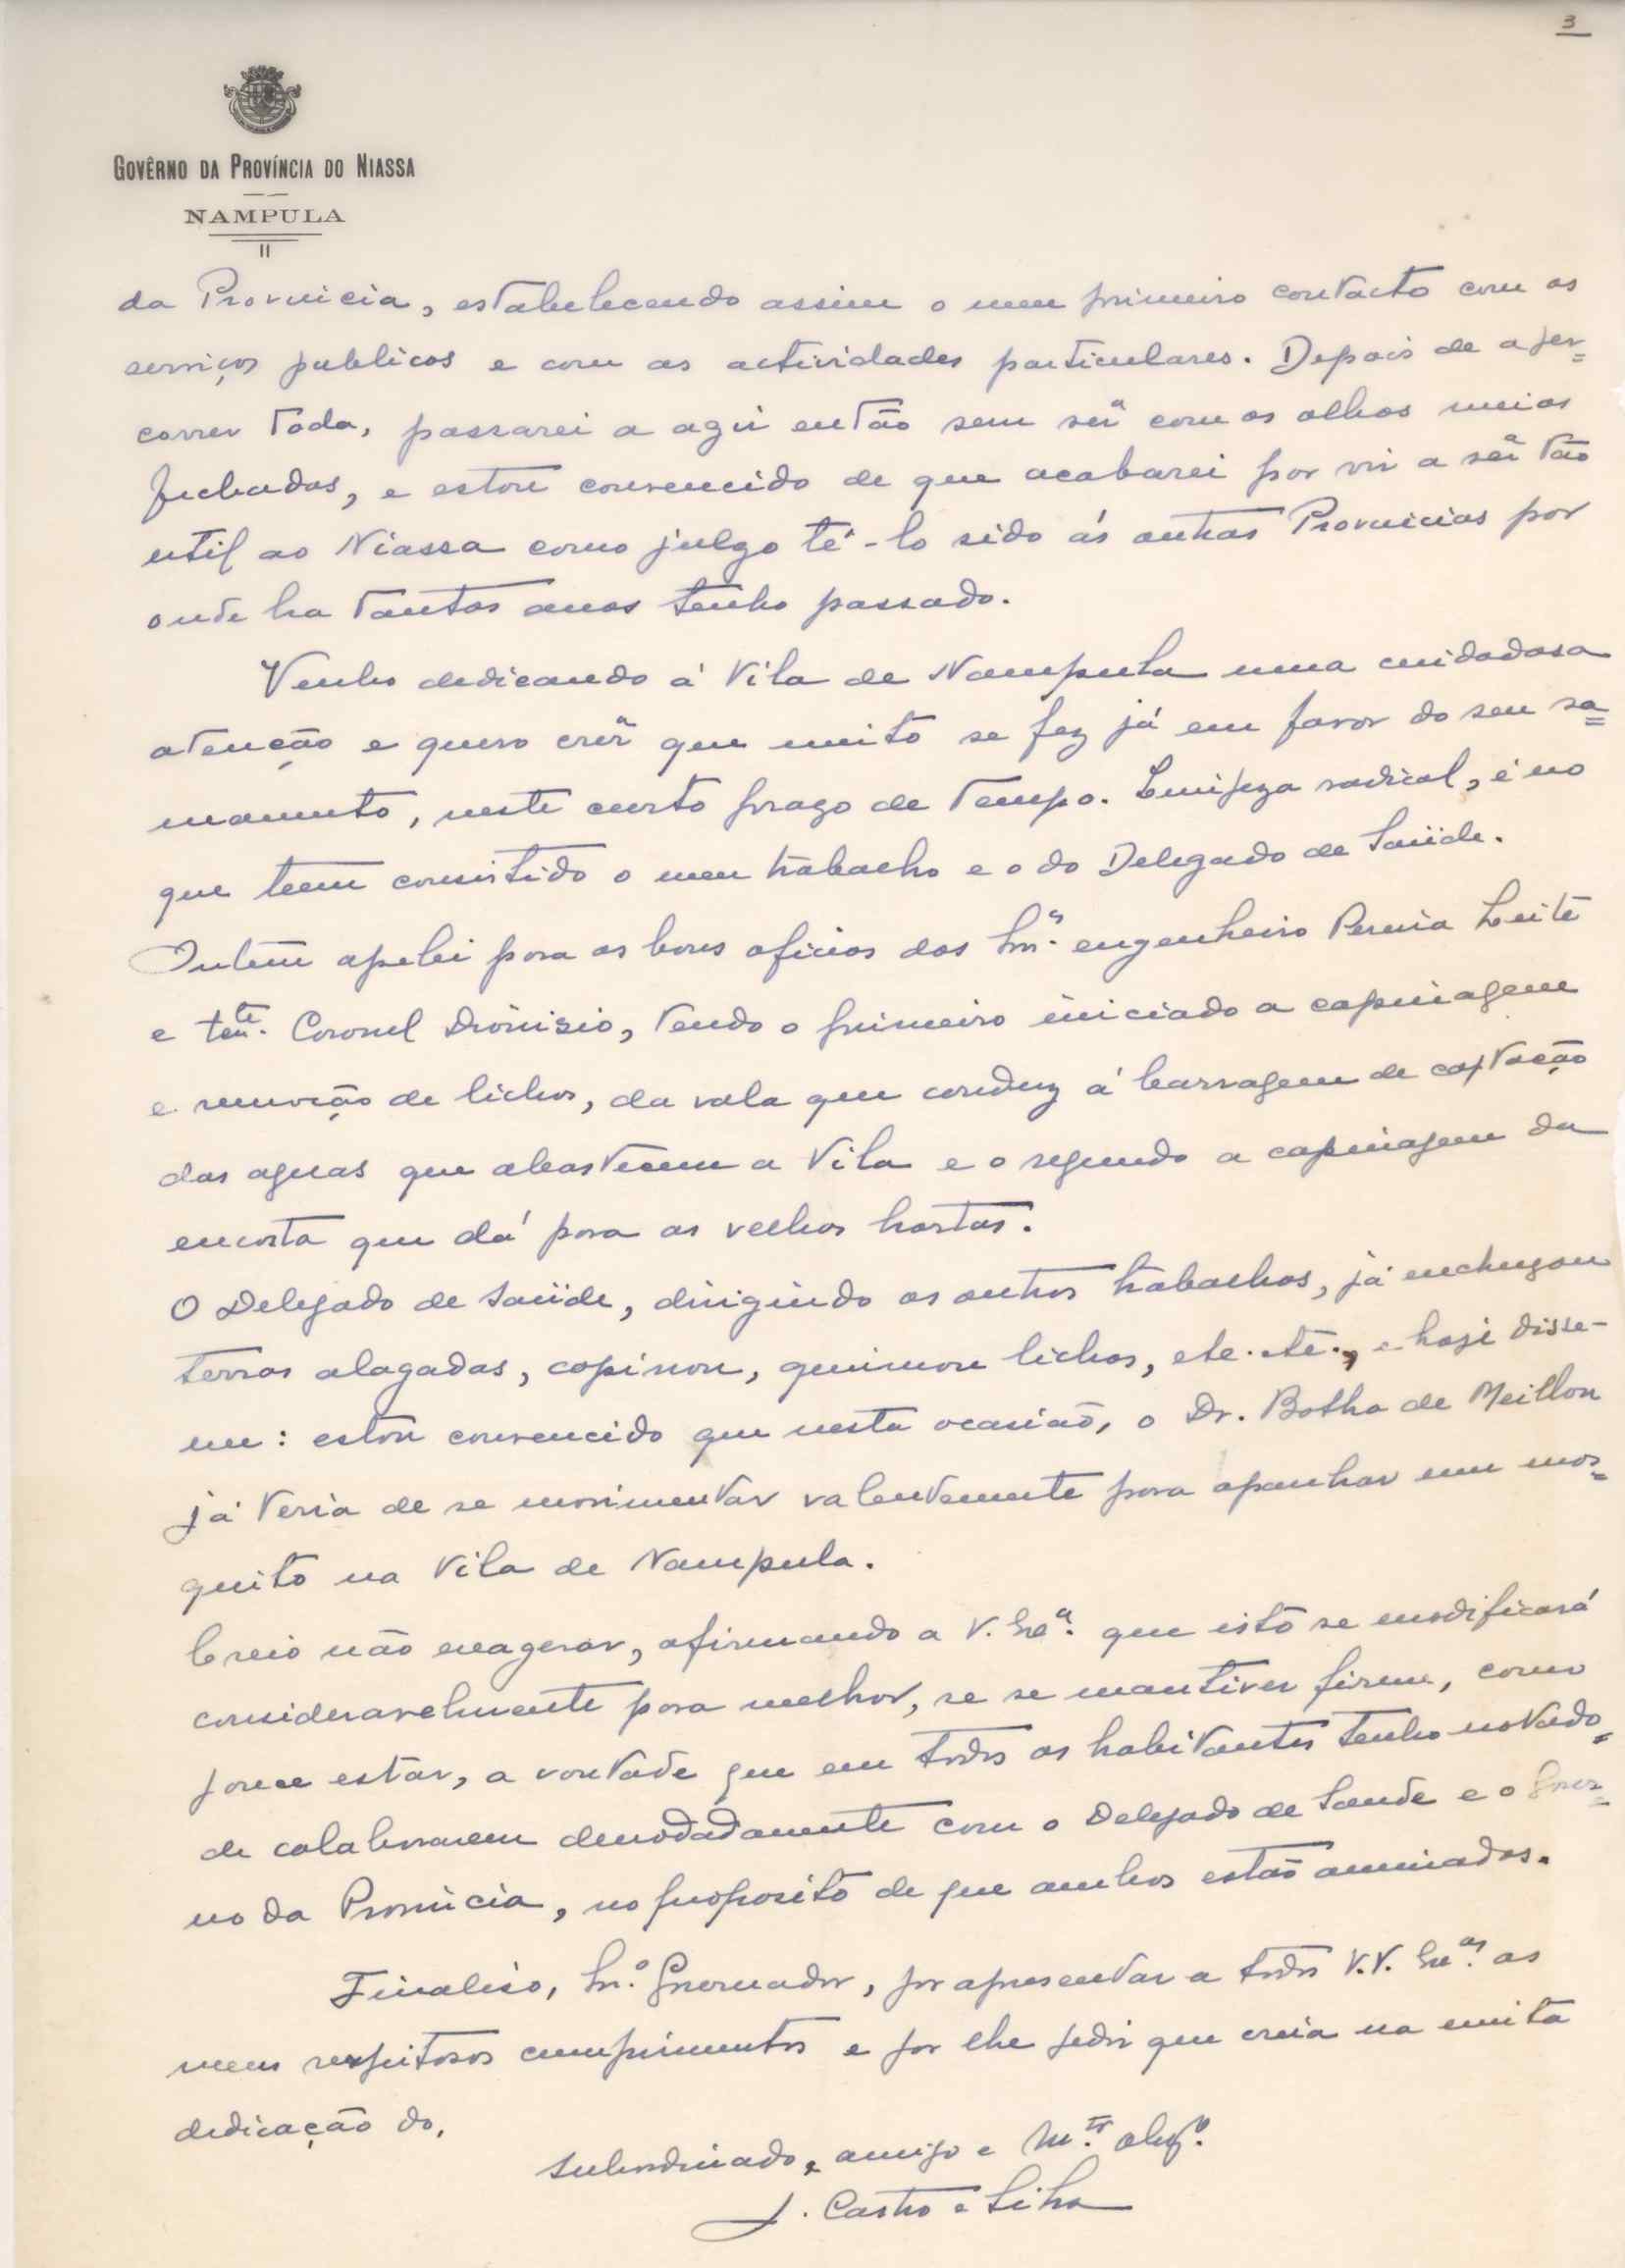 3
GOVÊRNO DA PROVÍNCIA DO NIASSA
NAMPULA
da Provincia, estabelecendo assim o meu primeiro contacto com os
serviços publicos e com as actividades particulares. Depois de a per=
correr toda, passarei a agir então sem sêr com os olhos meios
fechados, e estou convencido de que acabarei por vir a sêr tão
util ao Niassa como julgo tê-lo sido ás outras Provincias por
onde ha tantos anos tenho passado.
Venho dedicando á Vila de Nampula uma cuidadosa
atenção e quero crêr que muito se fez já em favor do seu sa=
neamento, neste curto prazo de tempo. Limpeza radical, é no
que teem consistido o meu trabalho e o do Delegado de Saüde.
Ontem apelei para os bons oficios dos Snrs. engenheiro Pereira Leite
e tente. Coronel Dionisio, tendo o primeiro iniciado a capinagem
e remoção de lichos, da vala que conduz á barragem de captação
das aguas que abastecem a Vila e o segundo a capinagem da
encosta que dá para as velhas hortas.
O Delegado de Saüde, dirigindo os outros trabalhos, já enchugou
terras alagadas, capinou, queimou lichos, etc. etc., e hoje disse-
me: estou convencido que nesta ocasião, o Dr. Botha de Meillon
já teria de se movimentar valentemente para apanhar um mos=
quito na Vila de Nampula.
Creio não exagerar, afirmando a V. Exa. que isto se modificará
consideravelmente para melhor, se se mantiver firme, como
parece estar, a vontade que em todos os habitantes tenho notado,
de colaborarem denodadamente com o Delegado de Saude e o Gover=
no da Provincia, no proposito de que ambos estão animados.
Finaliso, Snr. Governador, por apresentar a todos V.V. Exas. os
meus respeitosos cumprimentos e por lhe pedir que creia na muita
dedicação do,
subordinado, amigo e Mto. obrgo.
J. Castro e Silva